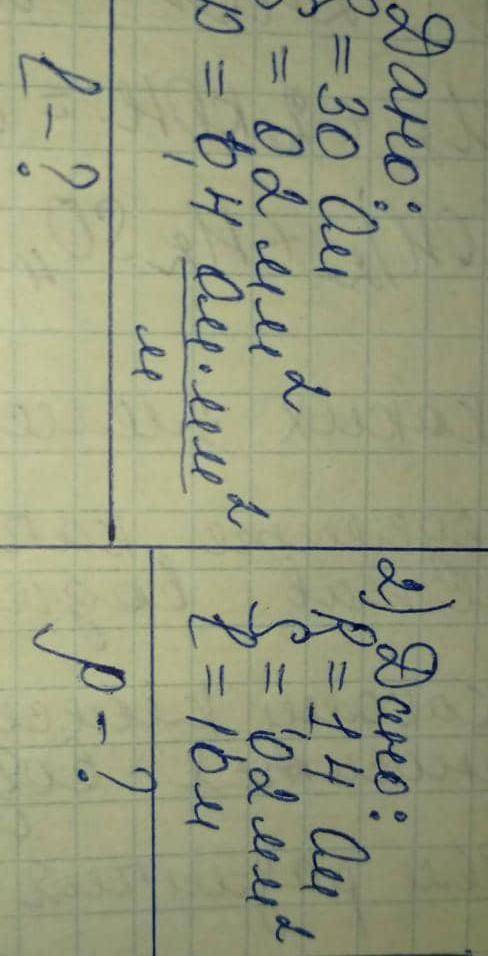 Дано:
R = 30 Ом
S = 0,2 мм²
ρ = 0,4 Ом·мм²
м
l - ?
2) Дано:
R = 1,4 Ом
S = 0,2 мм²
l = 10 м
ρ - ?